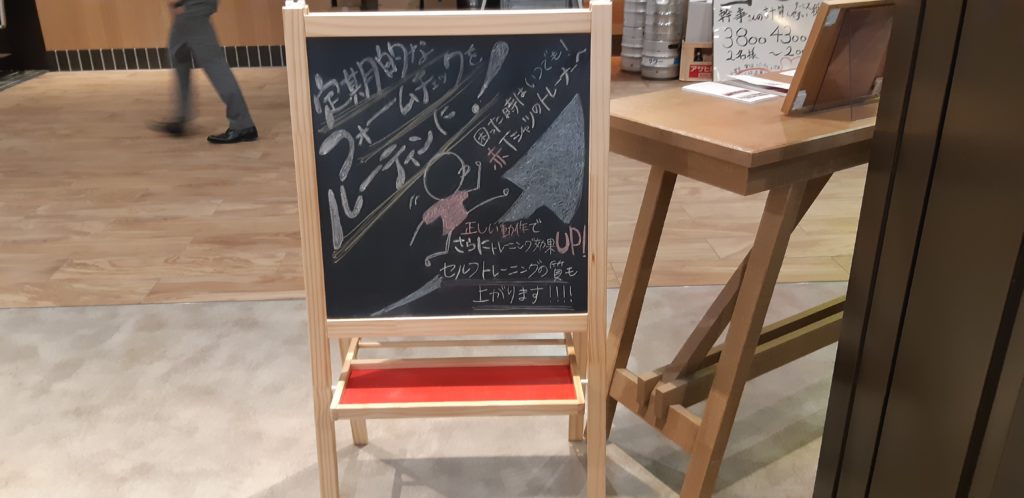 定期的な
フォームチェックを
ルーティンに！
困った時はいつでも！
赤Tシャツのトレーナーへ
正しい動作で
さらにトレーニング効果UP!
セルフトレーニングの質も
上がります!!!!
幹事さんの
3800 4300
2名様 ～